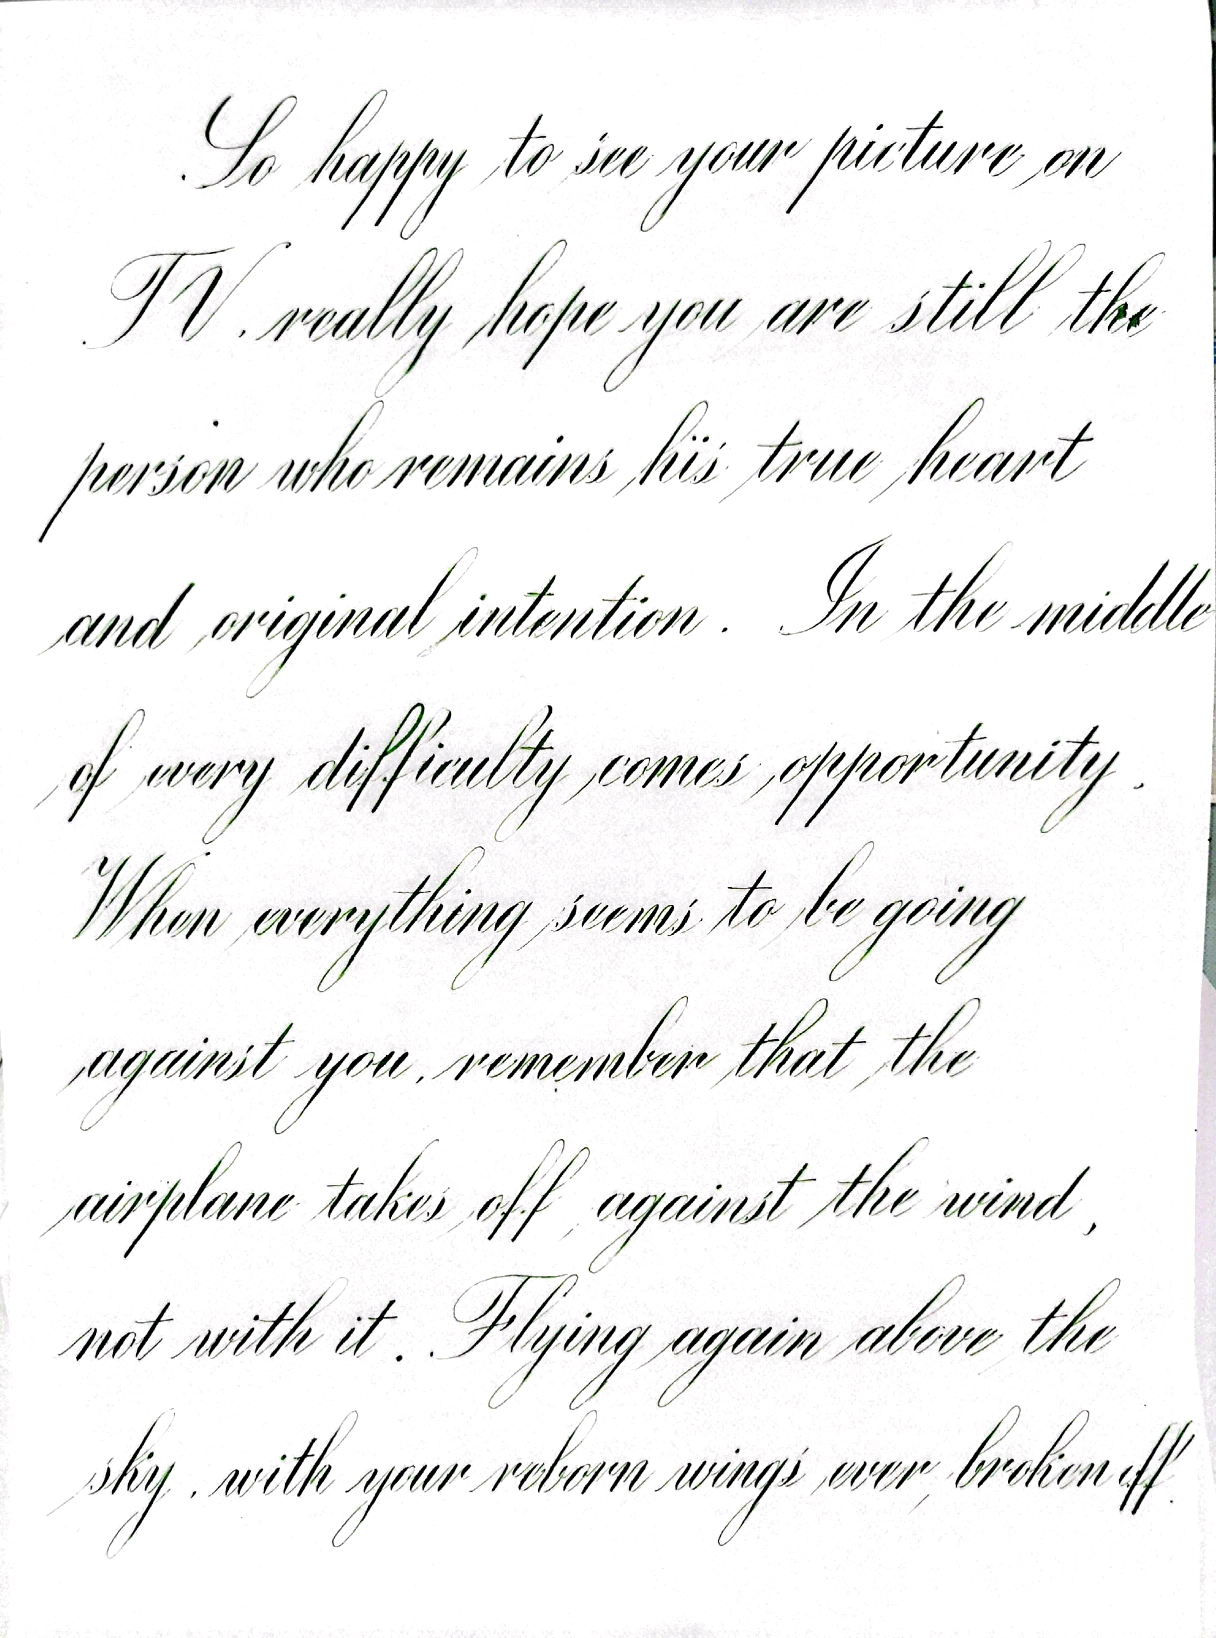 So happy to see your picture on
TV. really hope you are still the
person who remains his true heart
and original intention. In the middle
of every difficulty comes opportunity.
When everything seems to be going
against you, remember that the
airplane takes off against the wind,
not with it. Flying again above the
sky, with your reborn wings ever broken off.